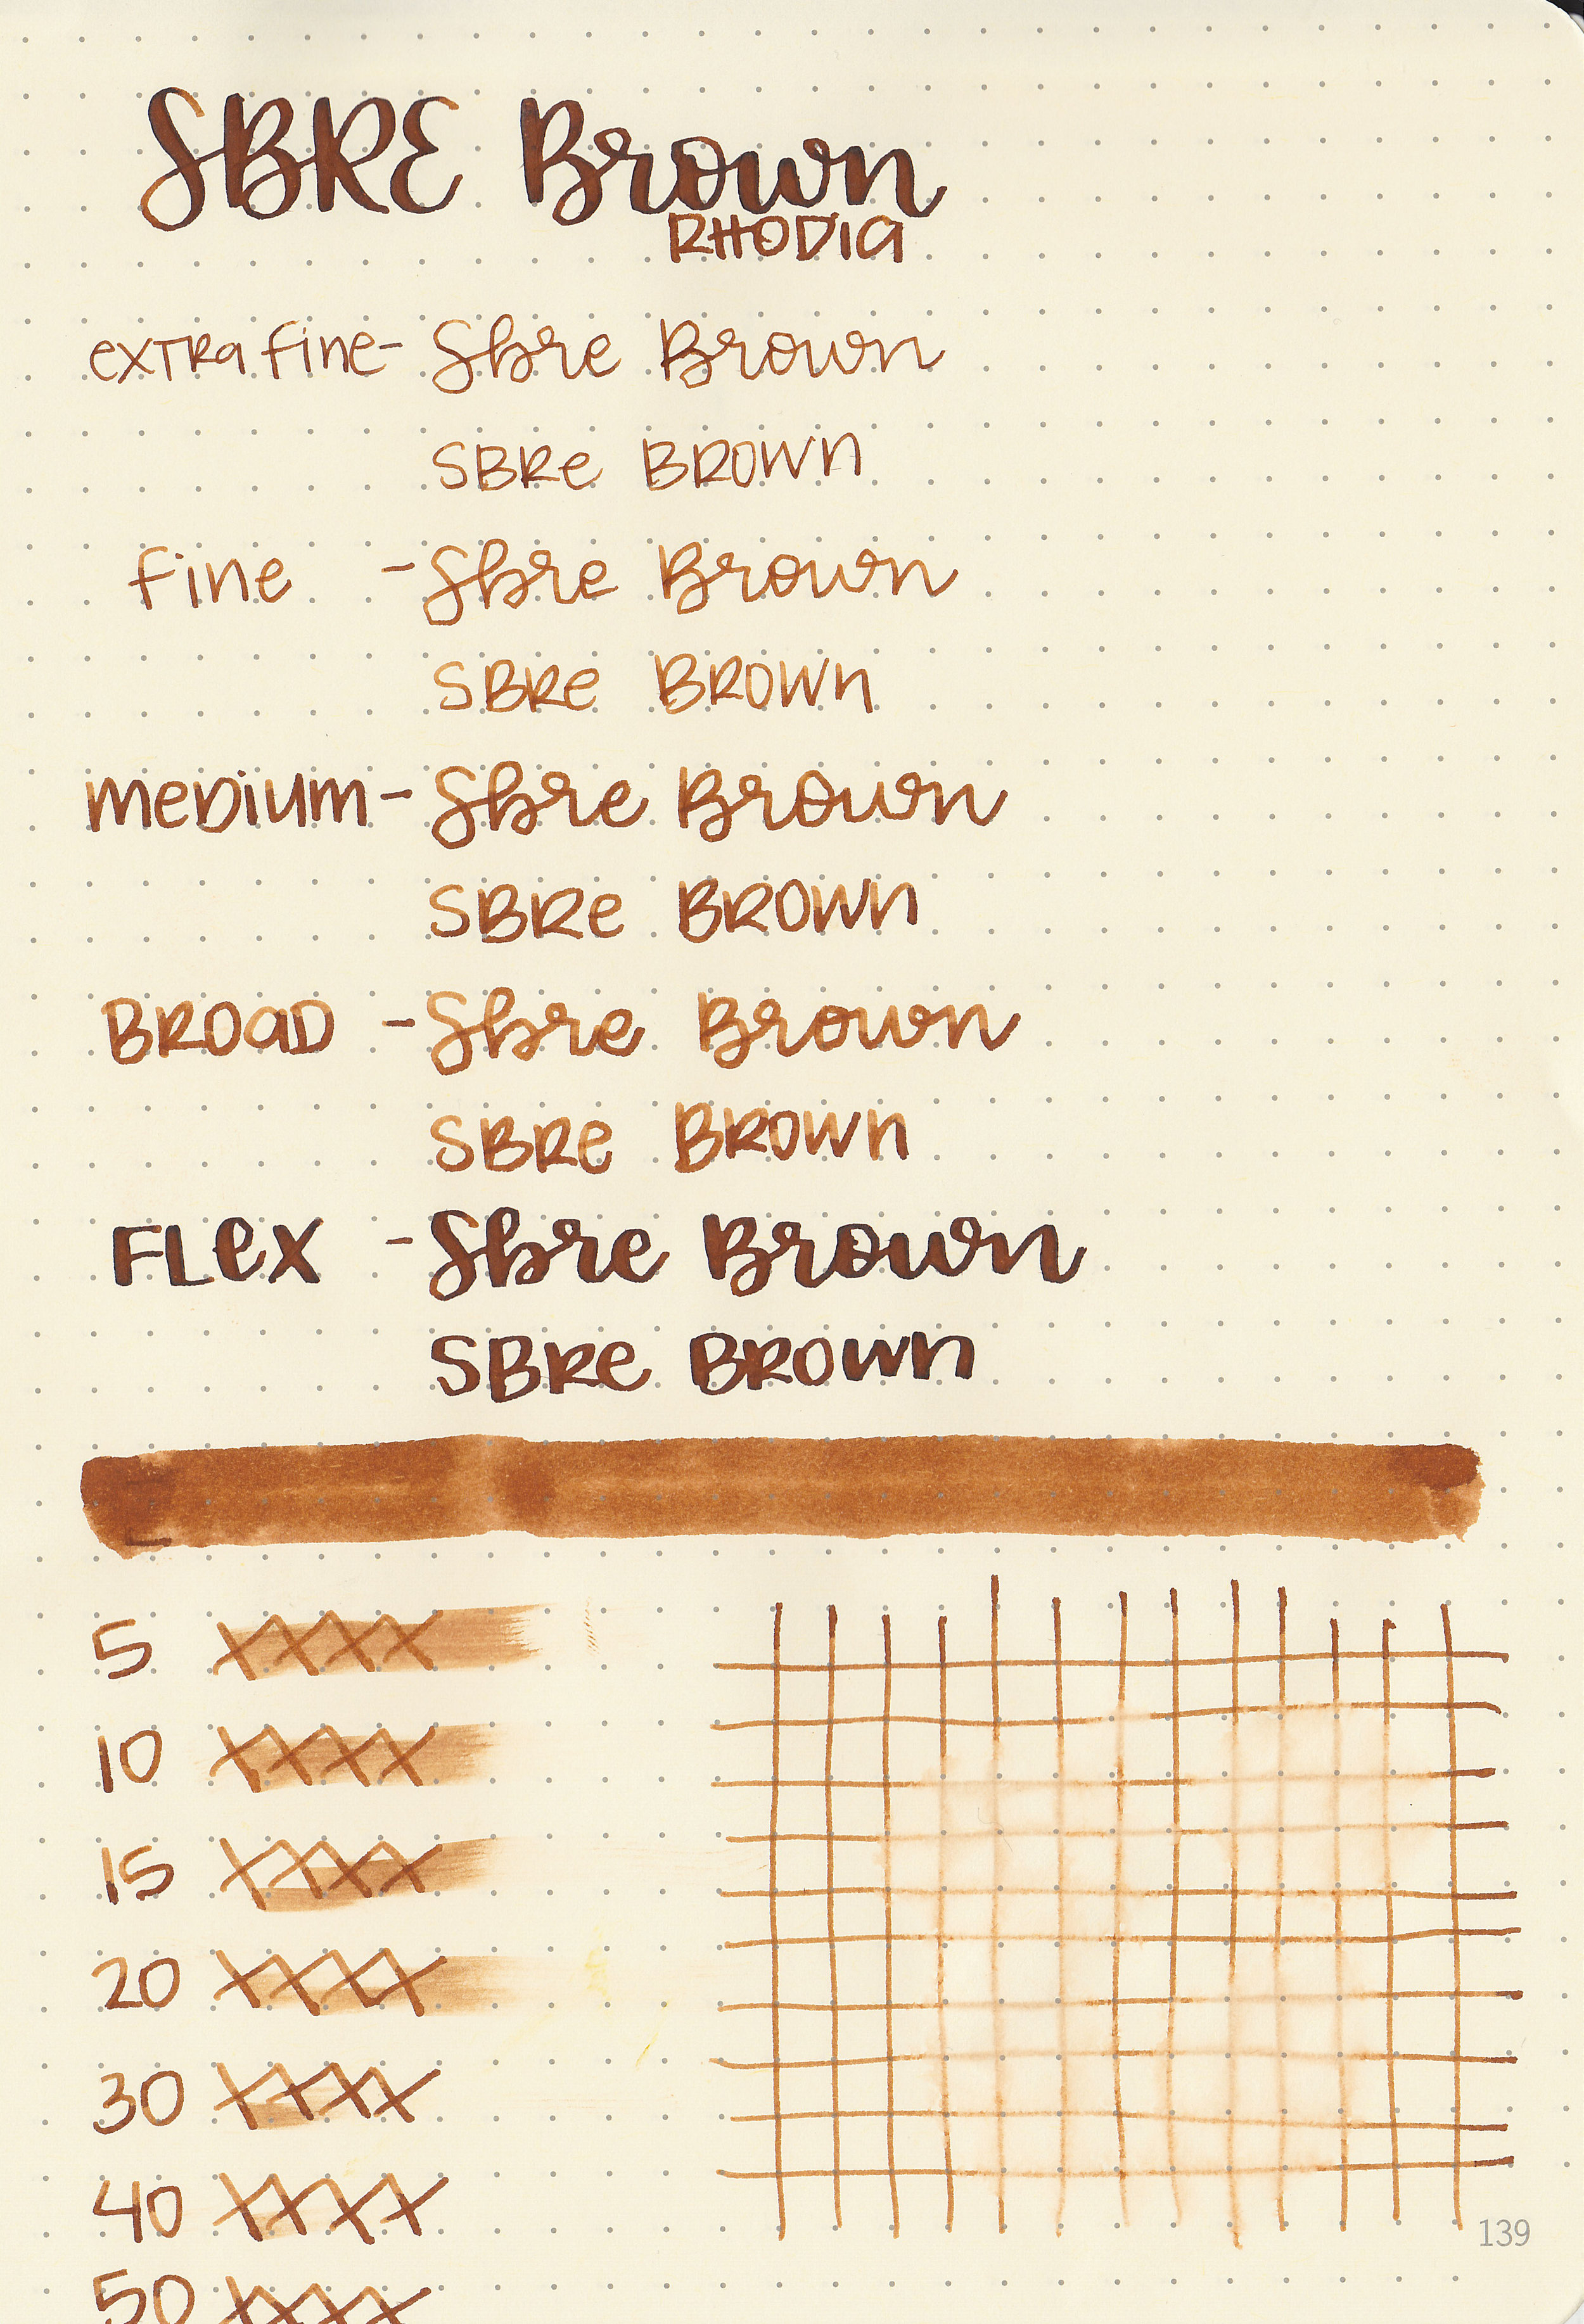 SBRE Brown
RHODIA
extra fine - Sbre Brown
SBRe BROWn
fine - Sbre Brown
SBRe BROWn
meDium - Sbre Brown
SBRe BROWn
BROaD - Sbre Brown
SBRe BROWn
FLex - Sbre Brown
SBRe BROWn
5 XXXX
10 XXXX
15 XXXX
20 XXXX
30 XXXX
40 XXXX
50 XXXX
139